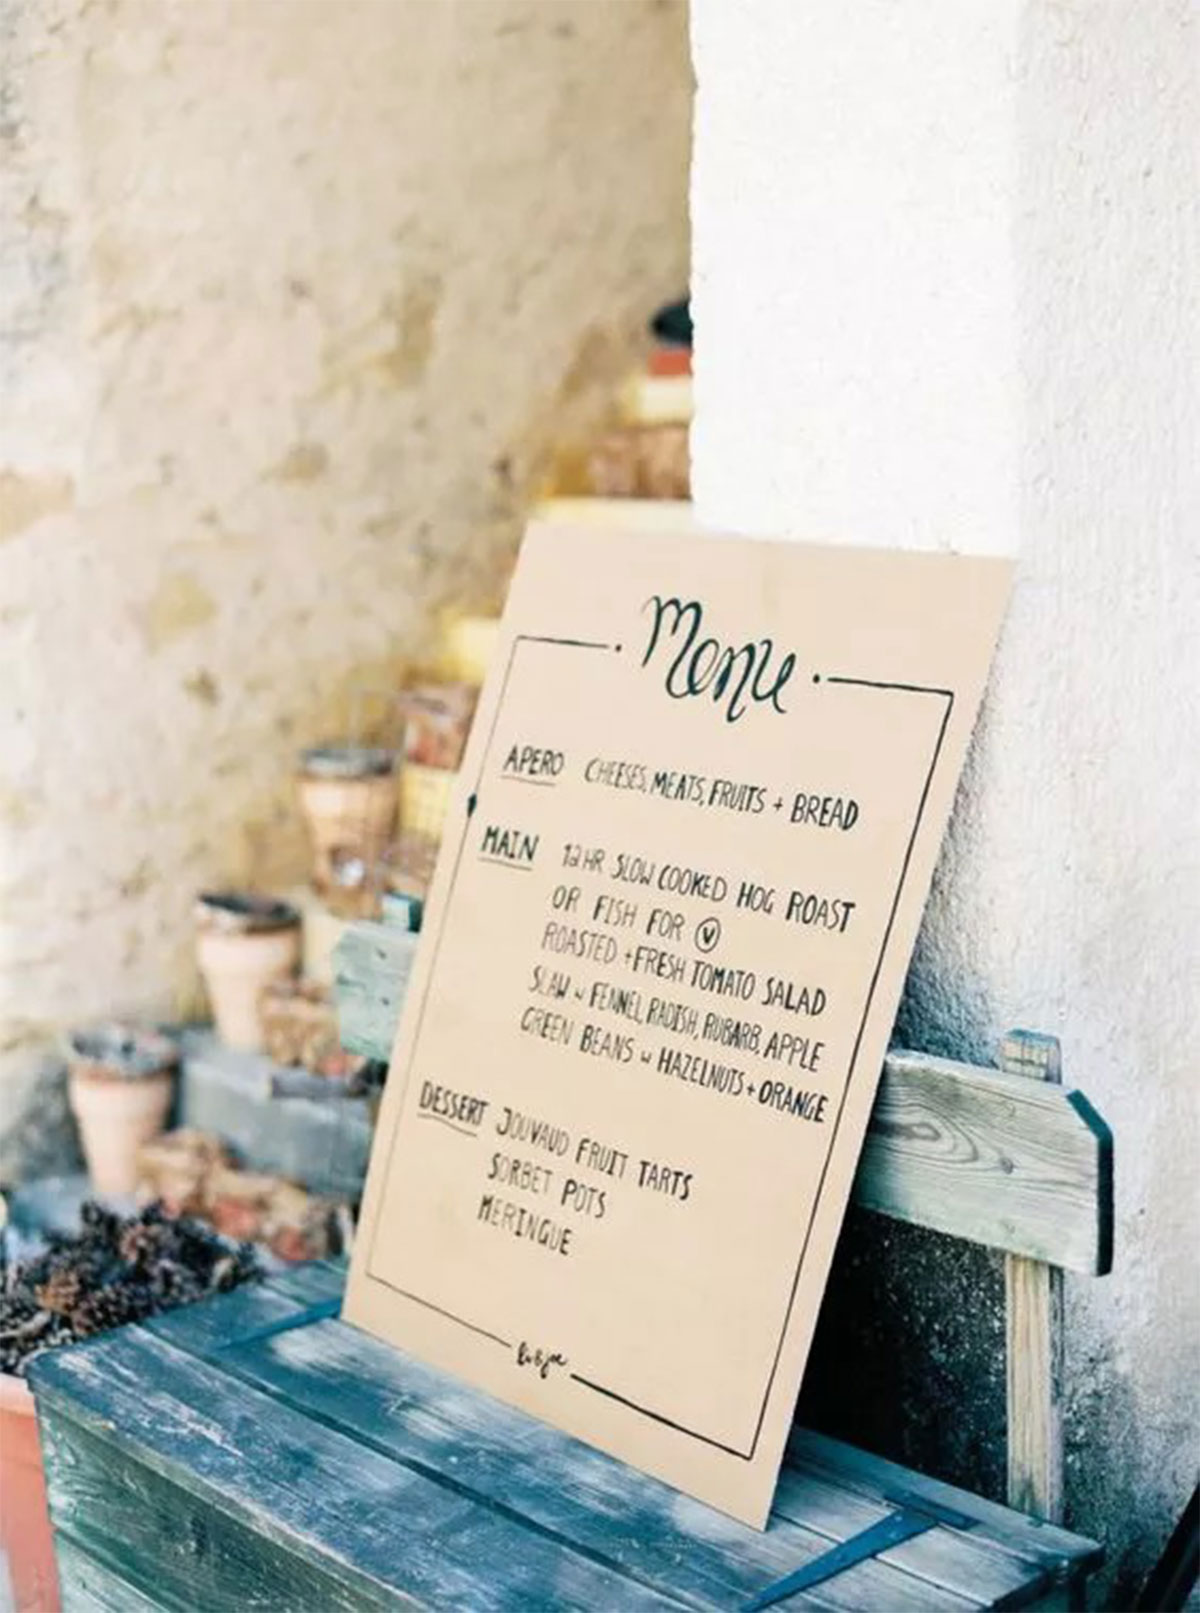 Menu
APERO CHEESES, MEATS, FRUITS + BREAD
MAIN 12 HR SLOW COOKED HOG ROAST
OR FISH FOR V
ROASTED + FRESH TOMATO SALAD
SLAW w FENNEL, RADISH, RUBARB, APPLE
GREEN BEANS w HAZELNUTS + ORANGE
DESSERT JOUVAUD FRUIT TARTS
SORBET POTS
MERINGUE